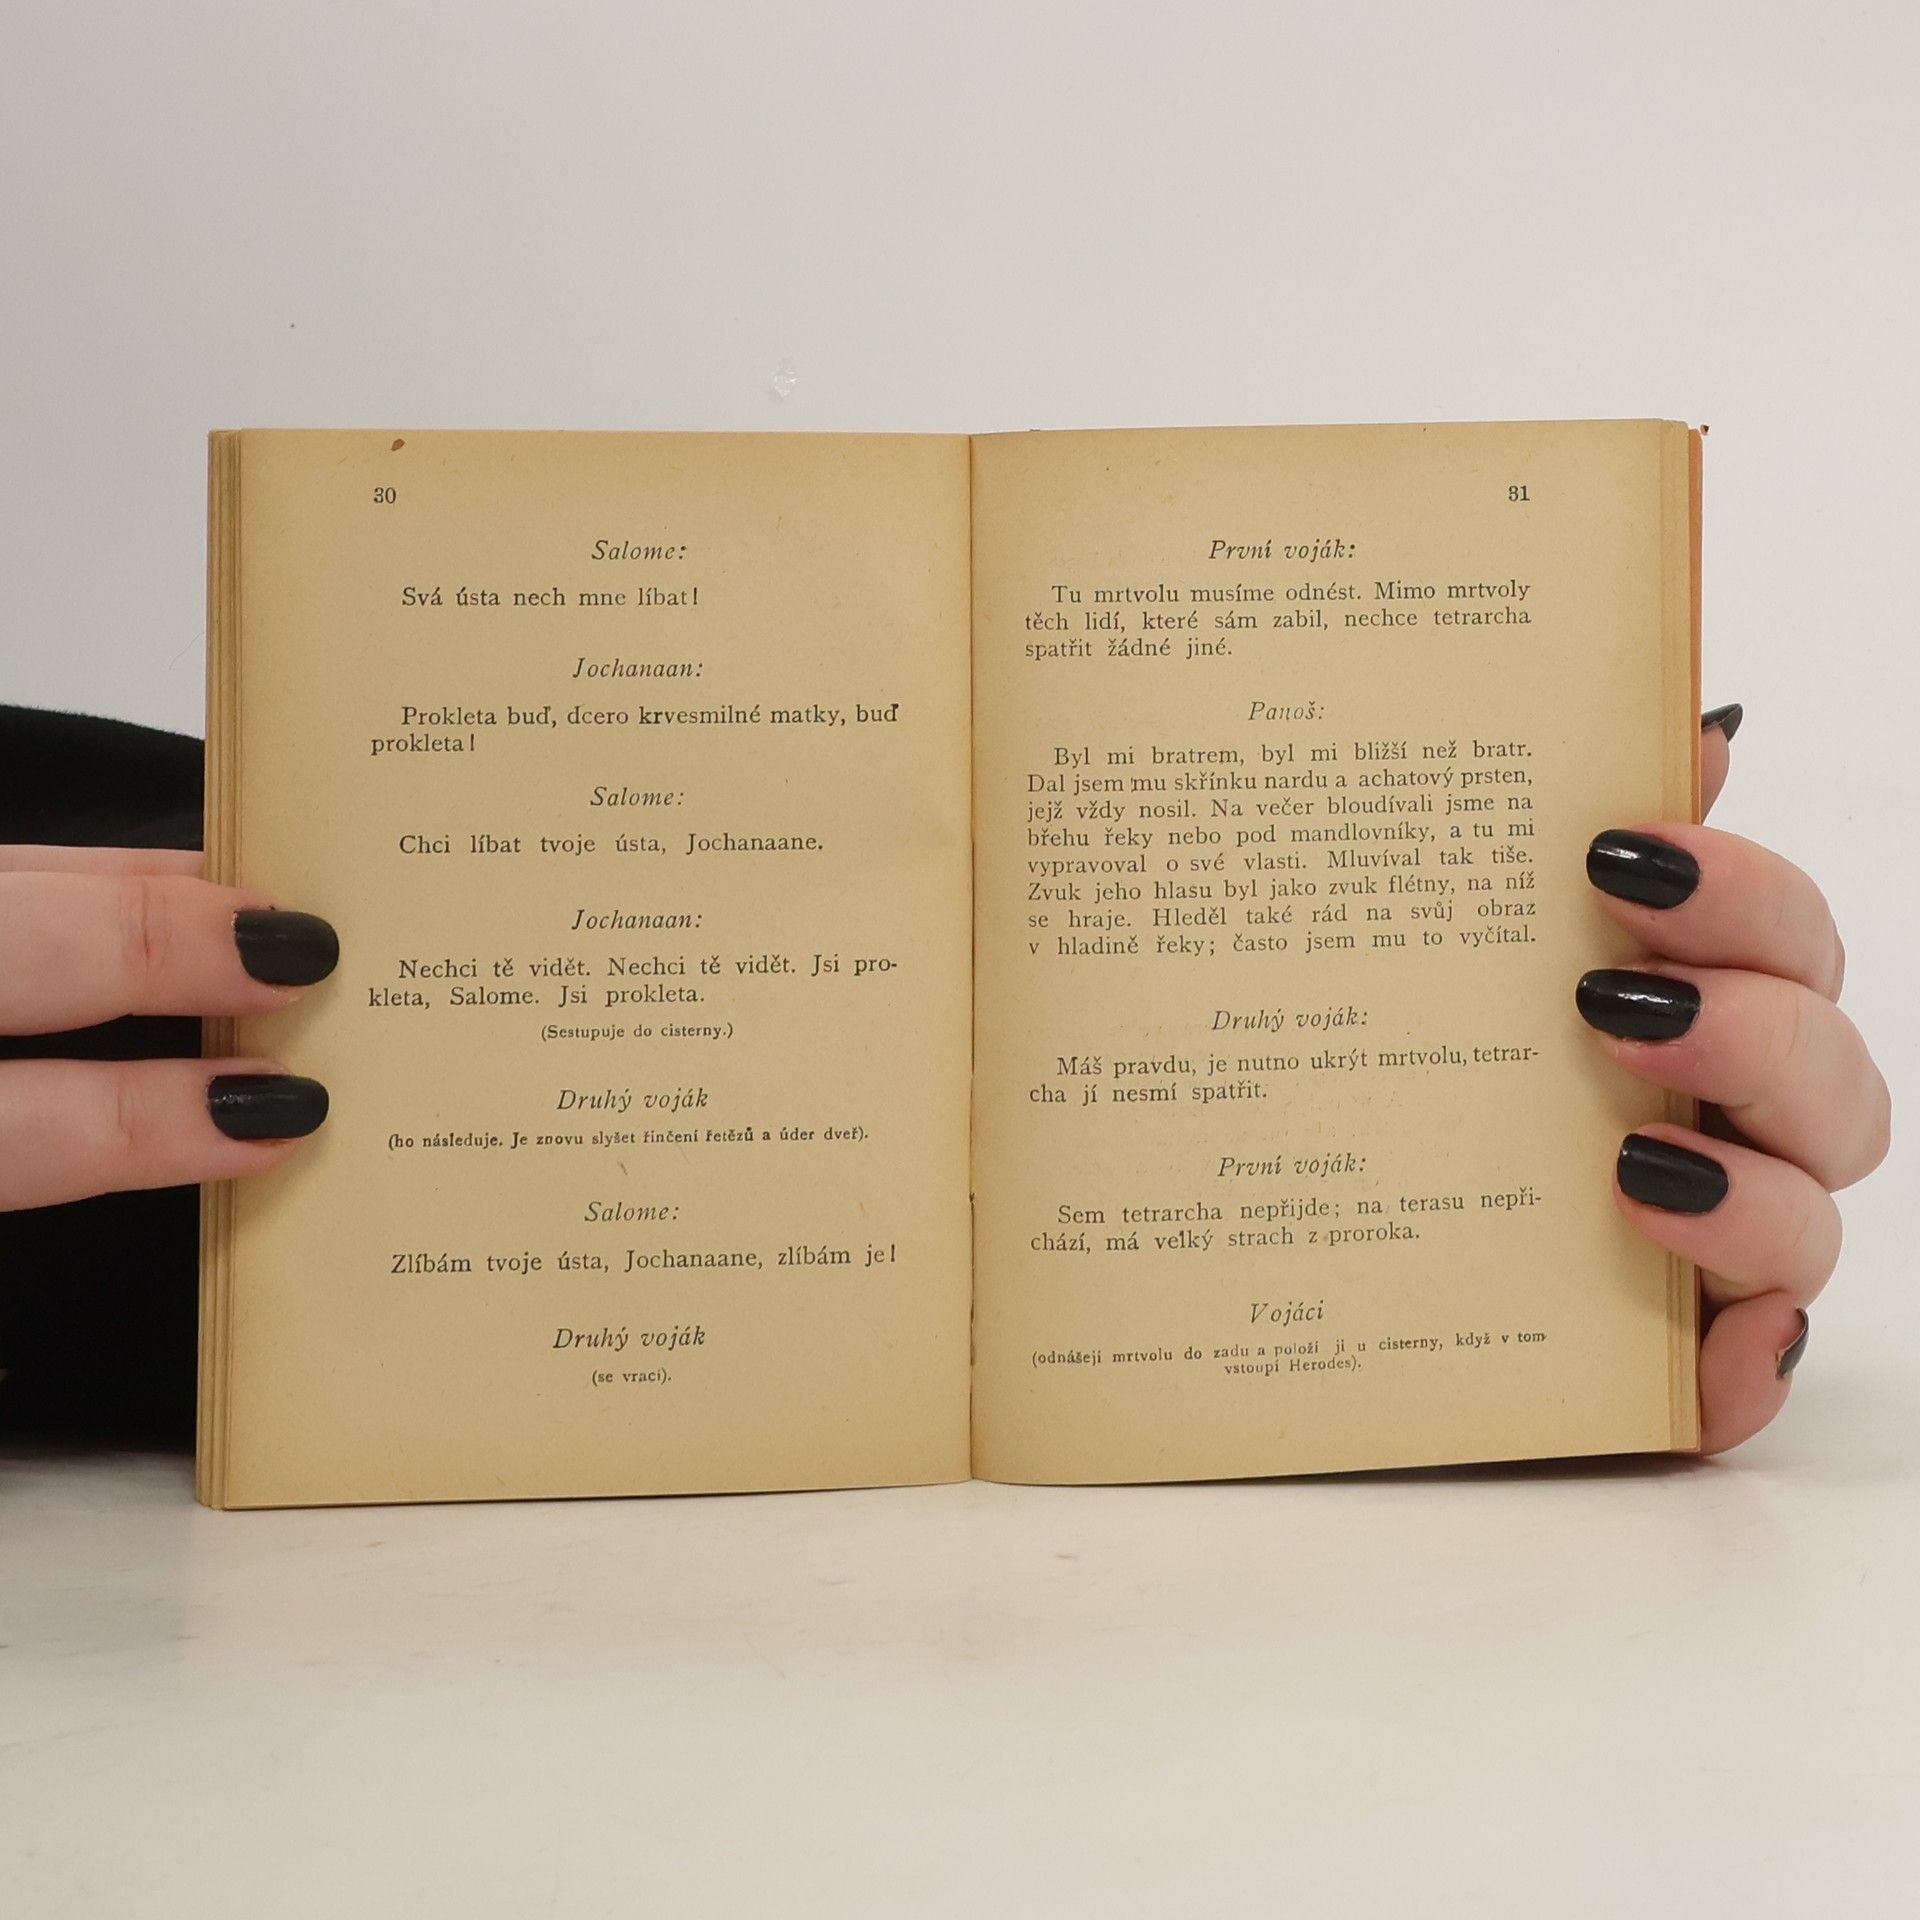 30
Salome:
Svá ústa nech mne líbat!
Jochanaan:
Prokleta buď, dcero krvesmilné matky, buď
prokleta!
Salome:
Chci líbat tvoje ústa, Jochanaane.
Jochanaan:
Nechci tě vidět. Nechci tě vidět. Jsi pro-
kleta, Salome. Jsi prokleta.
(Sestupuje do cisterny.)
Druhý voják
(ho následuje. Je znovu slyšet řinčení řetězů a úder dveř).
Salome:
Zlíbám tvoje ústa, Jochanaane, zlíbám je!
Druhý voják
(se vrací).
31
První voják:
Tu mrtvolu musíme odnést. Mimo mrtvoly
těch lidí, které sám zabil, nechce tetrarcha
spatřit žádné jiné.
Panoš:
Byl mi bratrem, byl mi bližší než bratr.
Dal jsem mu skřínku nardu a achatový prsten,
jejž vždy nosil. Na večer bloudívali jsme na
břehu řeky nebo pod mandlovníky, a tu mi
vypravoval o své vlasti. Mluvíval tak tiše.
Zvuk jeho hlasu byl jako zvuk flétny, na níž
se hraje. Hleděl také rád na svůj obraz
v hladině řeky; často jsem mu to vyčítal.
Druhý voják:
Máš pravdu, je nutno ukrýt mrtvolu, tetrar-
cha jí nesmí spatřit.
První voják:
Sem tetrarcha nepřijde; na terasu nepři-
chází, má velký strach z proroka.
Vojáci
(odnášejí mrtvolu do zadu a položí ji u cisterny, když v tom
vstoupí Herodes).